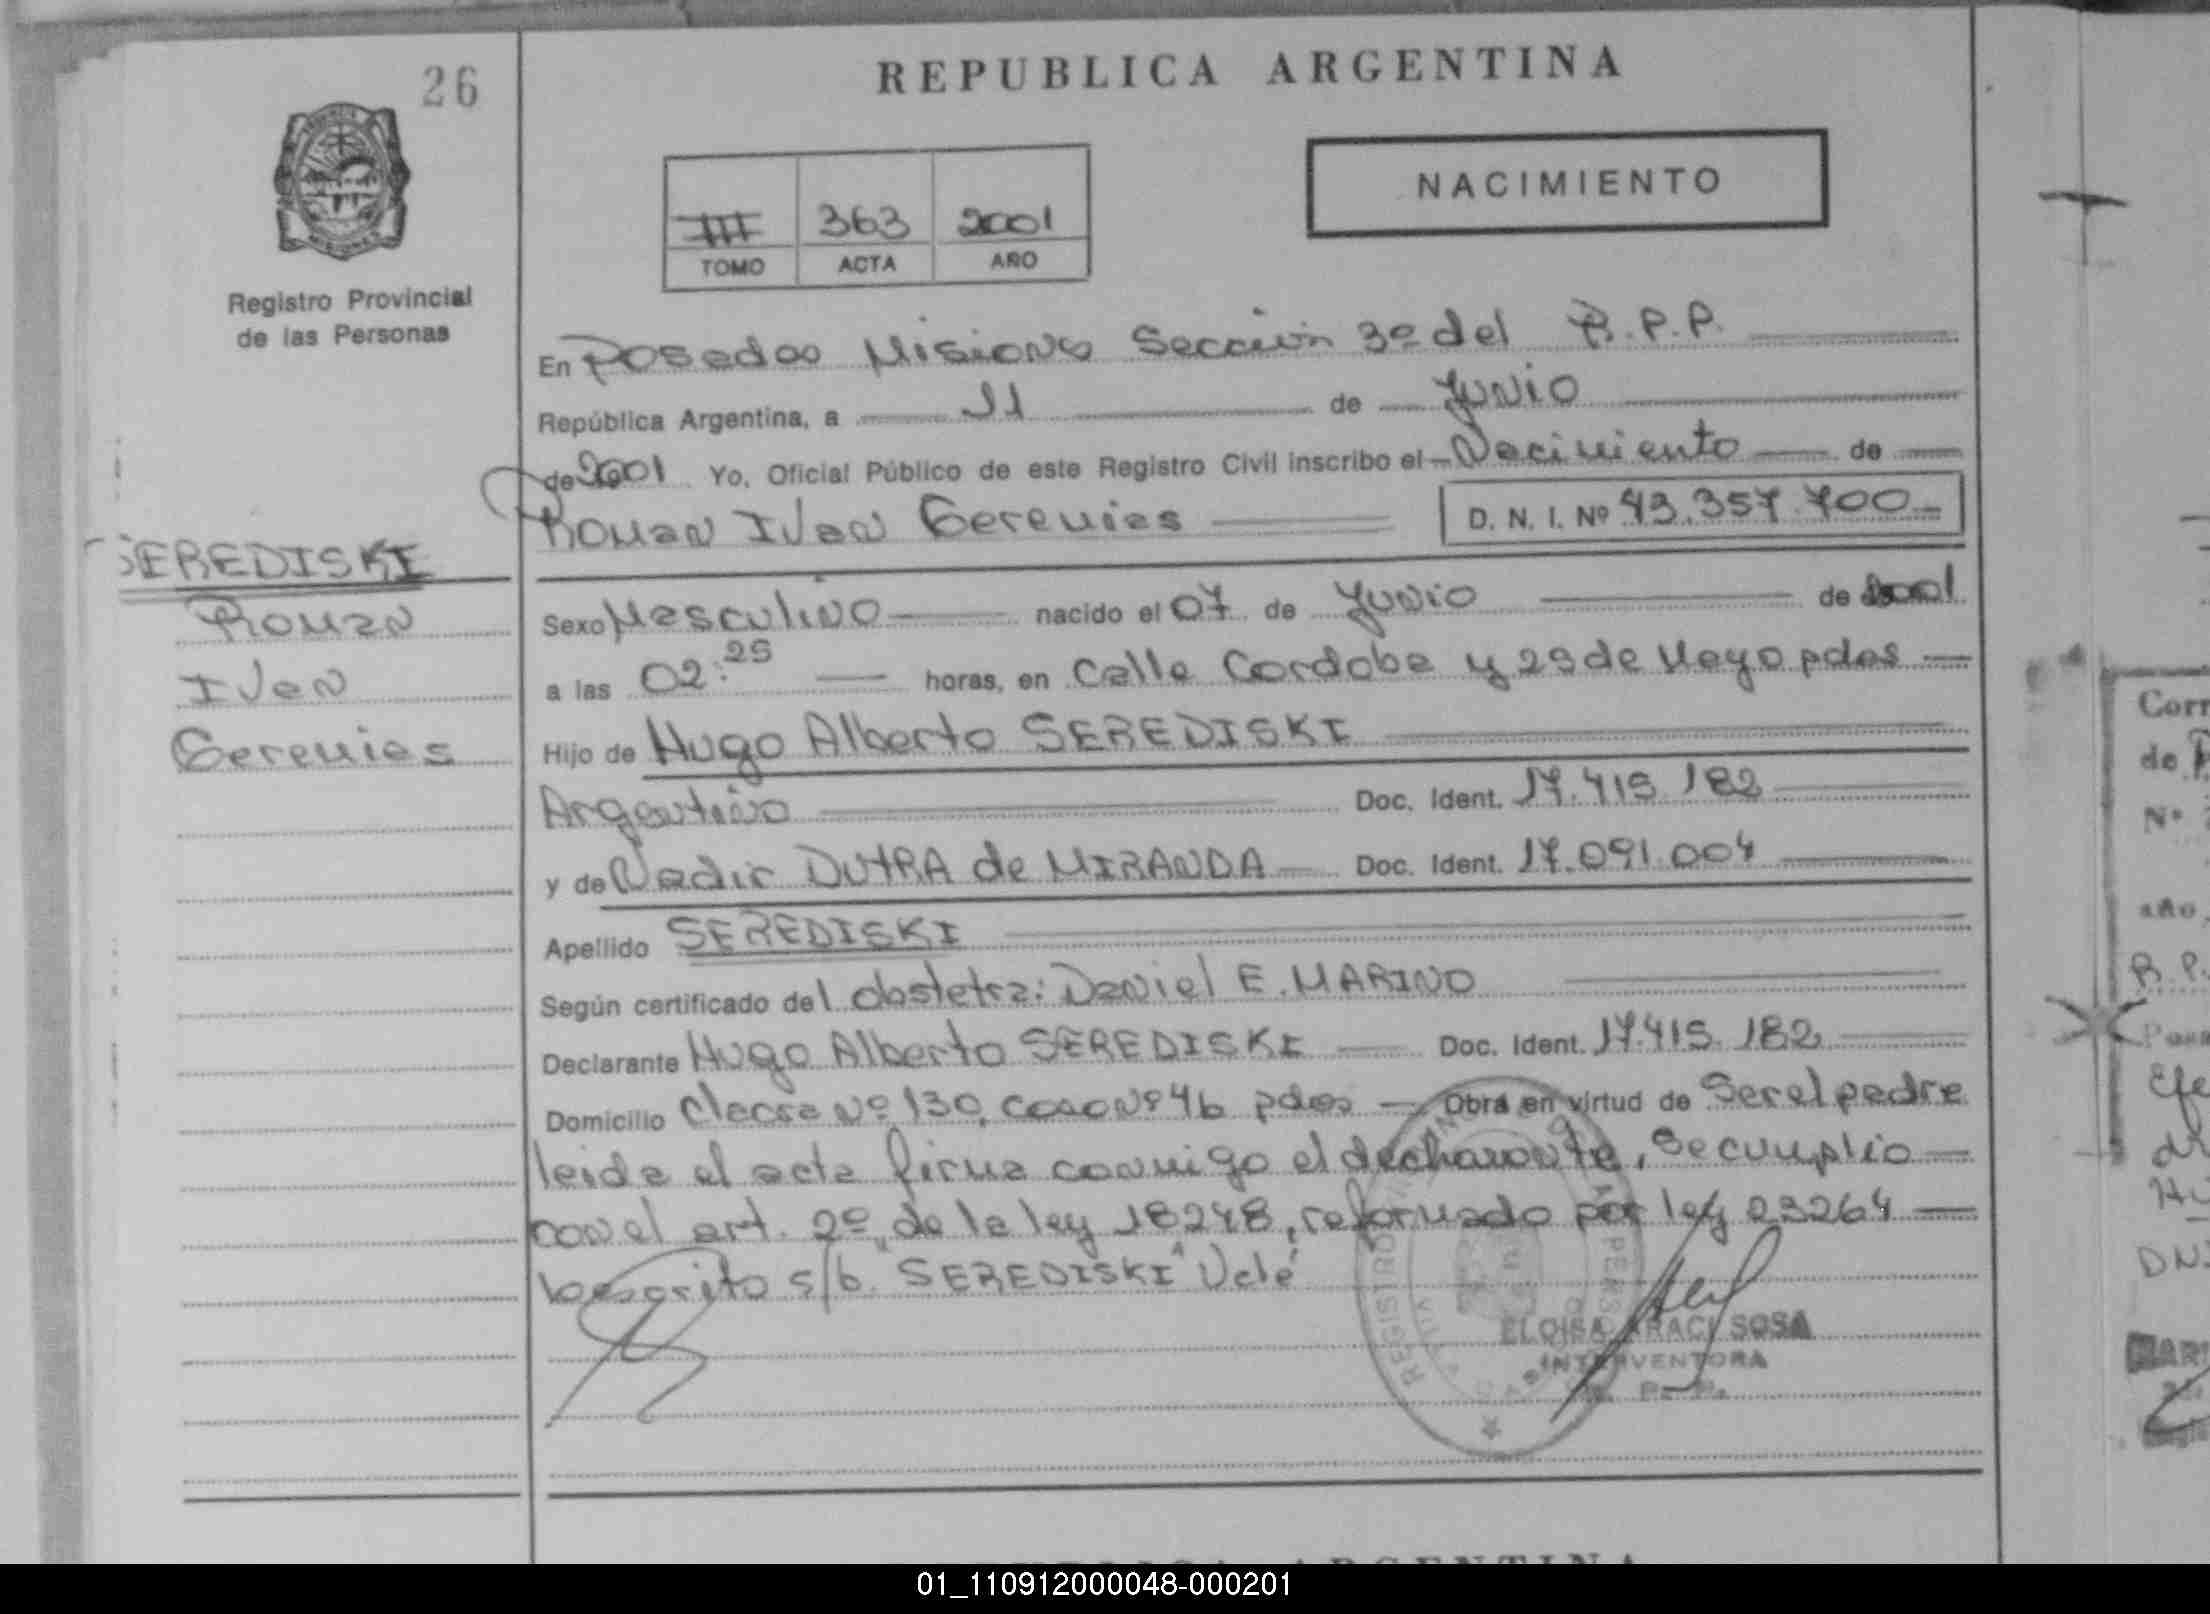 26
REPUBLICA ARGENTINA
NACIMIENTO
III 363 2001
TOMO ACTA AÑO
Registro Provincial
de las Personas
En Posadas Misiones Sección 3º del R.P.P.
República Argentina, a 11 de Junio
de 2001 Yo, Oficial Público de este Registro Civil inscribo el Nacimiento de
Roman Ivan Geremias D. N. I. Nº 43.357.700
SEREDISKI
Roman
Ivan
Geremias
Sexo Masculino nacido el 07 de Junio de 2001
a las 02:25 horas, en Calle Cordoba y 25 de Mayo pdas
Hijo de Hugo Alberto SEREDISKI
Argentino Doc. Ident. 17.415.182
y de Nadir DUTRA de MIRANDA Doc. Ident. 17.091.004
Apellido SEREDISKI
Según certificado del obstetra: Daniel E. MARINO
Declarante Hugo Alberto SEREDISKI Doc. Ident. 17.415.182
Domicilio Chacra Nº 130, casa Nº 46 pdas Obra en virtud de Ser el padre
leida el acta firma conmigo el declarante, Se cumplio
con el art. 2º de la ley 18248, reformado por ley 23264
s/b "SEREDISKI" Vale
ELOISA ARACI SOSA
INTERVENTORA
R. P. P.
Corr
de P
Nº
año
R. P.
Efe
DN
MAR
REPUBLICA ARGENTINA
01_110912000048-000201